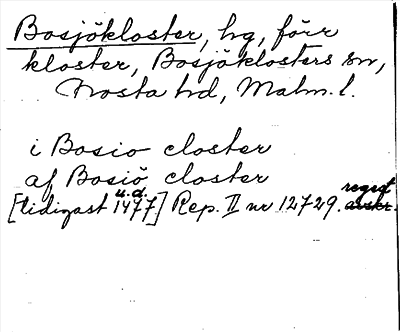 Bosjökloster, hg, förr
kloster, Bosjöklosters sn,
Frosta hd, Malm. l.
i Bosio closter
af Bosiö closter
u.d.
[tidigast 1477] Rep. II nr 12729. regest avskr.